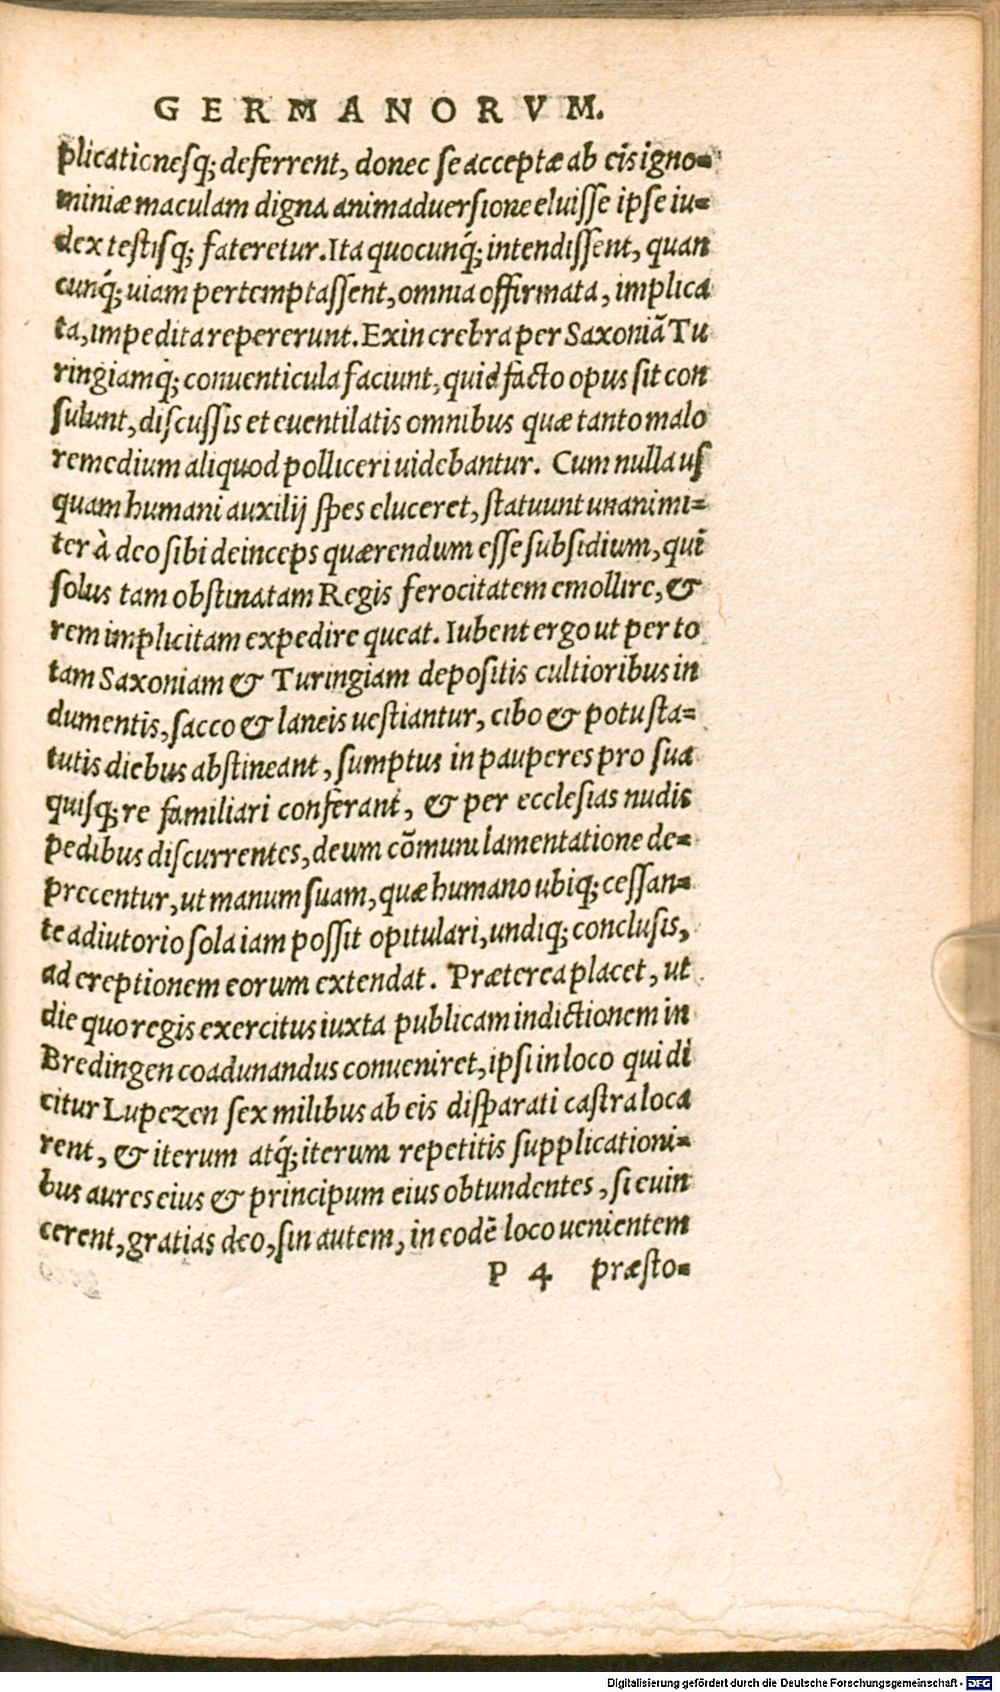 GERMANORVM.
plicationesq́; deferrent, donec se acceptæ ab eīs igno=
miniæ maculam digna animaduersione eluisse ipse iu=
dex testisq́; fateretur. Ita quocunq́; intendissent, quan
cunq́; uiam pertemptassent, omnia offirmata, implica
ta, impedita repererunt. Exin crebra per Saxoniā Tu
ringiamq́; conuenticula faciunt, quid facto opus sit con
sulunt, discussis et euentilatis omnibus quæ tanto malo
remedium aliquod polliceri uidebantur. Cum nulla us
quam humani auxilij spes eluceret, statuunt unanimi=
ter à deo sibi deinceps quærendum esse subsidium, quī
solus tam obstinatam Regis ferocitatem emollire, &
rem implicitam expedire queat. Iubent ergo ut per to
tam Saxoniam & Turingiam depositis cultioribus in
dumentis, sacco & laneis uestiantur, cibo & potu sta=
tutis diebus abstineant, sumptus in pauperes pro sua
quisq́; re familiari conferant, & per ecclesias nudis
pedibus discurrentes, deum cōmuni lamentatione de=
precentur, ut manum suam, quæ humano ubiq́; cessan=
te adiutorio sola iam possit opitulari, undiq́; conclusis,
ad ereptionem eorum extendat. Præterea placet, ut
die quo regis exercitus iuxta publicam indictionem in
Bredingen coadunandus conueniret, ipsi in loco qui di
citur Lupezen sex milibus ab eis disparati castra loca
rent, & iterum atq́; iterum repetitis supplicationi=
bus aures eius & principum eius obtundentes, si euin
cerent, gratias deo, sin autem, in eodē loco uenientem
P 4 præsto=
Digitalisierung gefördert durch die Deutsche Forschungsgemeinschaft - DFG